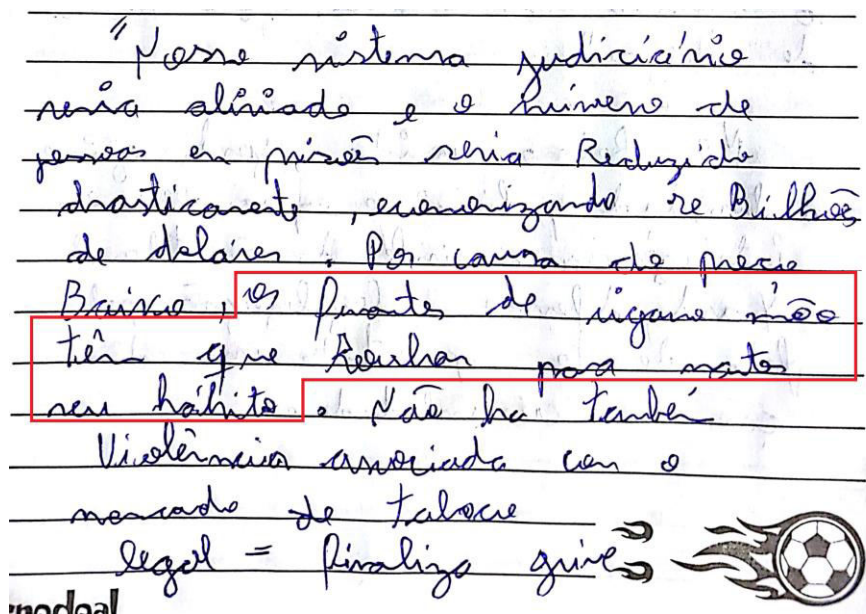 "Nosso sistema judiciciário
seria aliviado e o número de
pessoas en prisões seria Reduzido
drasticamente, economizando se Bilhões
de dolares. Por causa do preço
Baixo, os fumantes de cigarro não
têm que Roubar para manter
seu hábito. Não ha também
Violências associada con o
mercado de tabaco
legal = finaliza